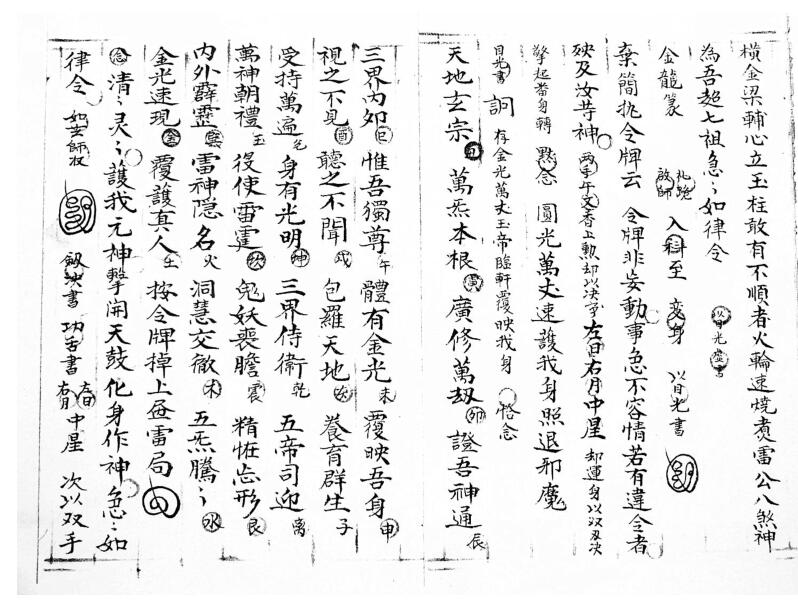 橫金梁輔心立玉柱敢有不順者火輪速燒煑雷公八煞神
為吾超七祖急〻如律令 以日光虛書
金龍篆 礼跪啟師 入科至 變身 以日光書
棄簡执令牌云 令牌非妄動事急不容情若有違令者
殃及汝等神 两手午文香上熏却以决予左日右月中星 却運身以双及决
擎起啓身轉 默念 圓光萬丈速護我身照退邪魔
目光書 訶 存金光萬丈玉帝臨軒覆映我身 恪念
天地玄宗丑 萬炁本根寅 廣修萬劫卯 證吾神通辰
三界内外巳 惟吾獨尊午 體有金光未 覆映吾身申
視之不見酉 聽之不聞戌 包羅天地亥 養育群生子
受持萬遍 身有光明坤 三界侍衛乾 五帝司迎离
萬神朝禮玉 役使雷霆 鬼妖喪膽震 精恠忘形艮
内外霹靂 雷神隐名火 洞慧交徹木 五炁騰〻水
金光速現金 覆護真人土 按令牌掉上每雷局
念 清〻灵〻護我元神擊開天鼓化身作神急〻如
律令 如玄師敕 劔决書 功吾書 左日右月 中星 次以双手